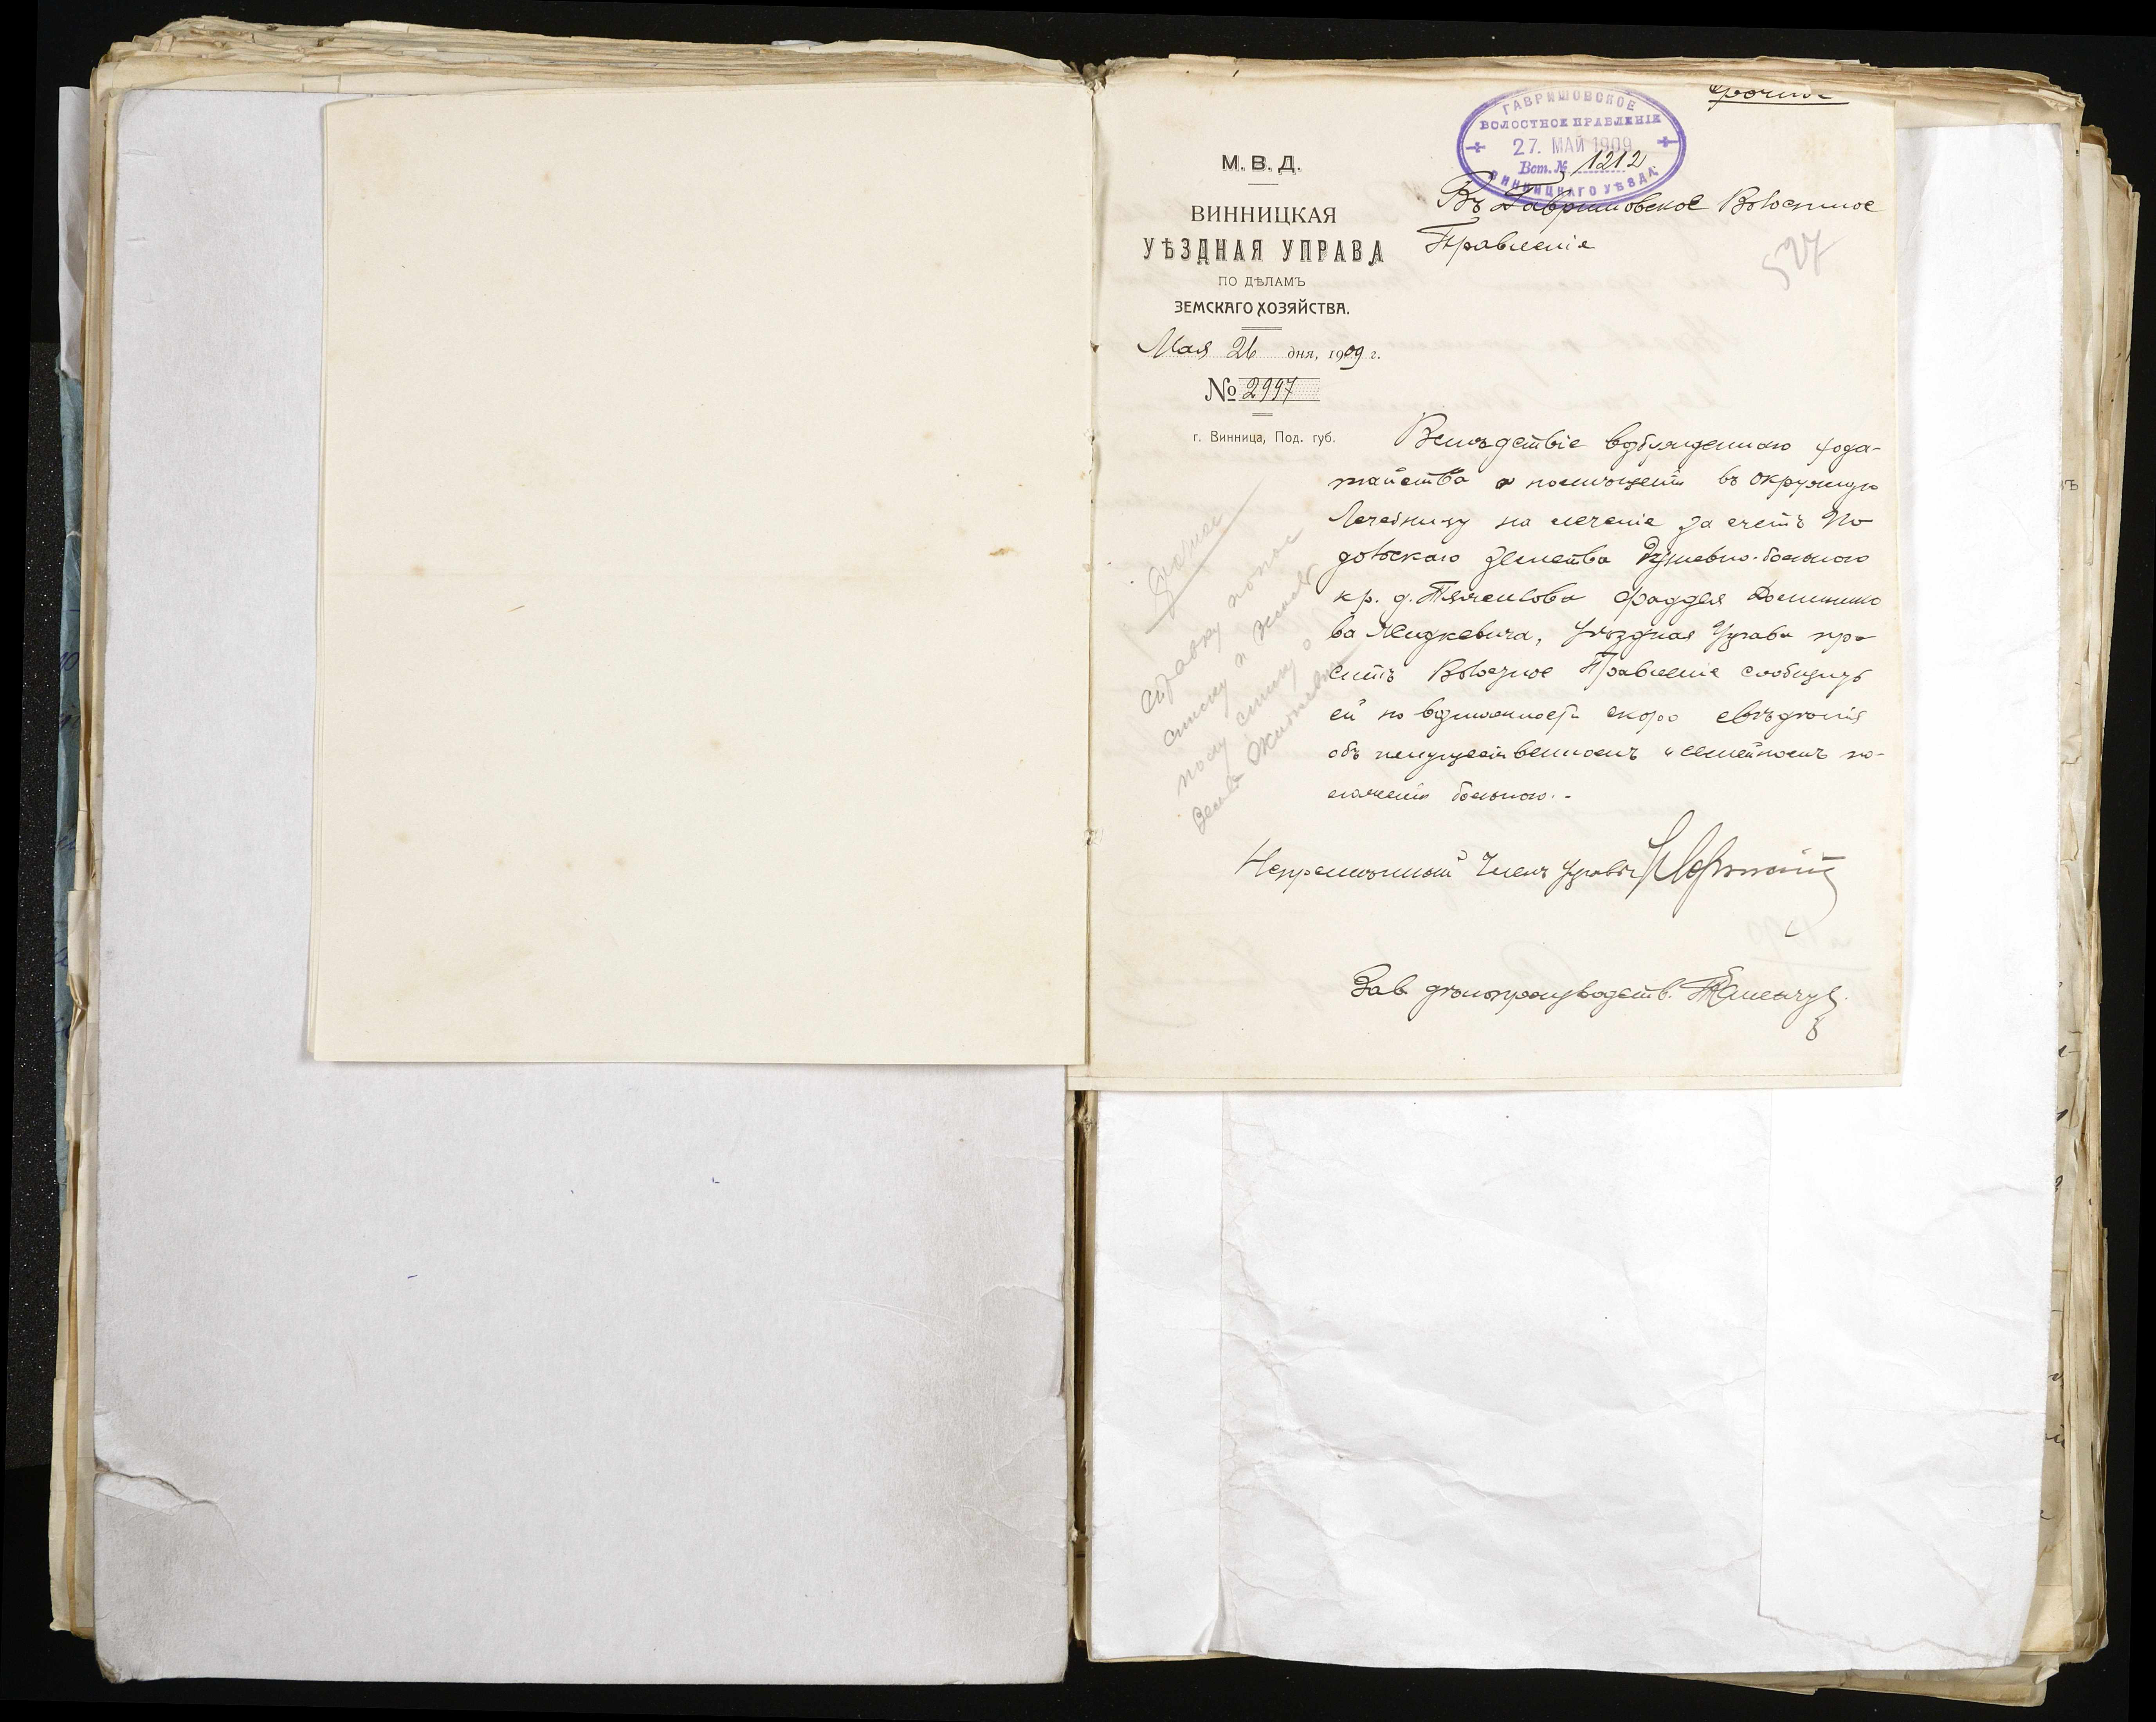 Срочно
ГАВРИШОВСКОЕ
ВОЛОСТНОЕ ПРАВЛЕНІЕ
27. МАЙ 1909
Вст. № 1212
ВИННИЦКАГО УѢЗДА
М. В. Д.
ВИННИЦКАЯ
УѢЗДНАЯ УПРАВА
ПО ДѢЛАМЪ
ЗЕМСКАГО ХОЗЯЙСТВА.
Мая 26 дня, 1909 г.
№ 2997
г. Винница, Под. губ.
Въ Гавришовское Волостное
Правленіе
527
Вслѣдствіе возбужденнаго хода-
тайства о помѣщеніи въ окружную
Лечебницу на леченіе за счетъ По
дольскаго Земства душевно-больного
кр. д. Фаддея Доминико
ва Жидкевича, Уѣздная Управа про
ситъ Волостное Правленіе сообщить
ей по возможности скоро свѣдѣнія
объ имущественномъ и семейномъ по-
ложеніи больного.-
справку
Непремѣнный Членъ Управы
Зав. дѣлопроизводств.